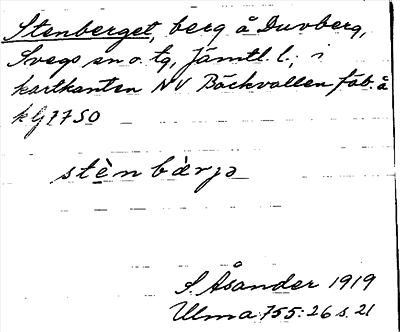 Stenberget, berg å Duvberg,
Svegs sn o. tg, Jämtl. l., i
kartkanten NV Bäckvallen fäb. å
kbl 2750
stènbàrjə
S. Åsander 1919
Ulma 755:26 s. 21